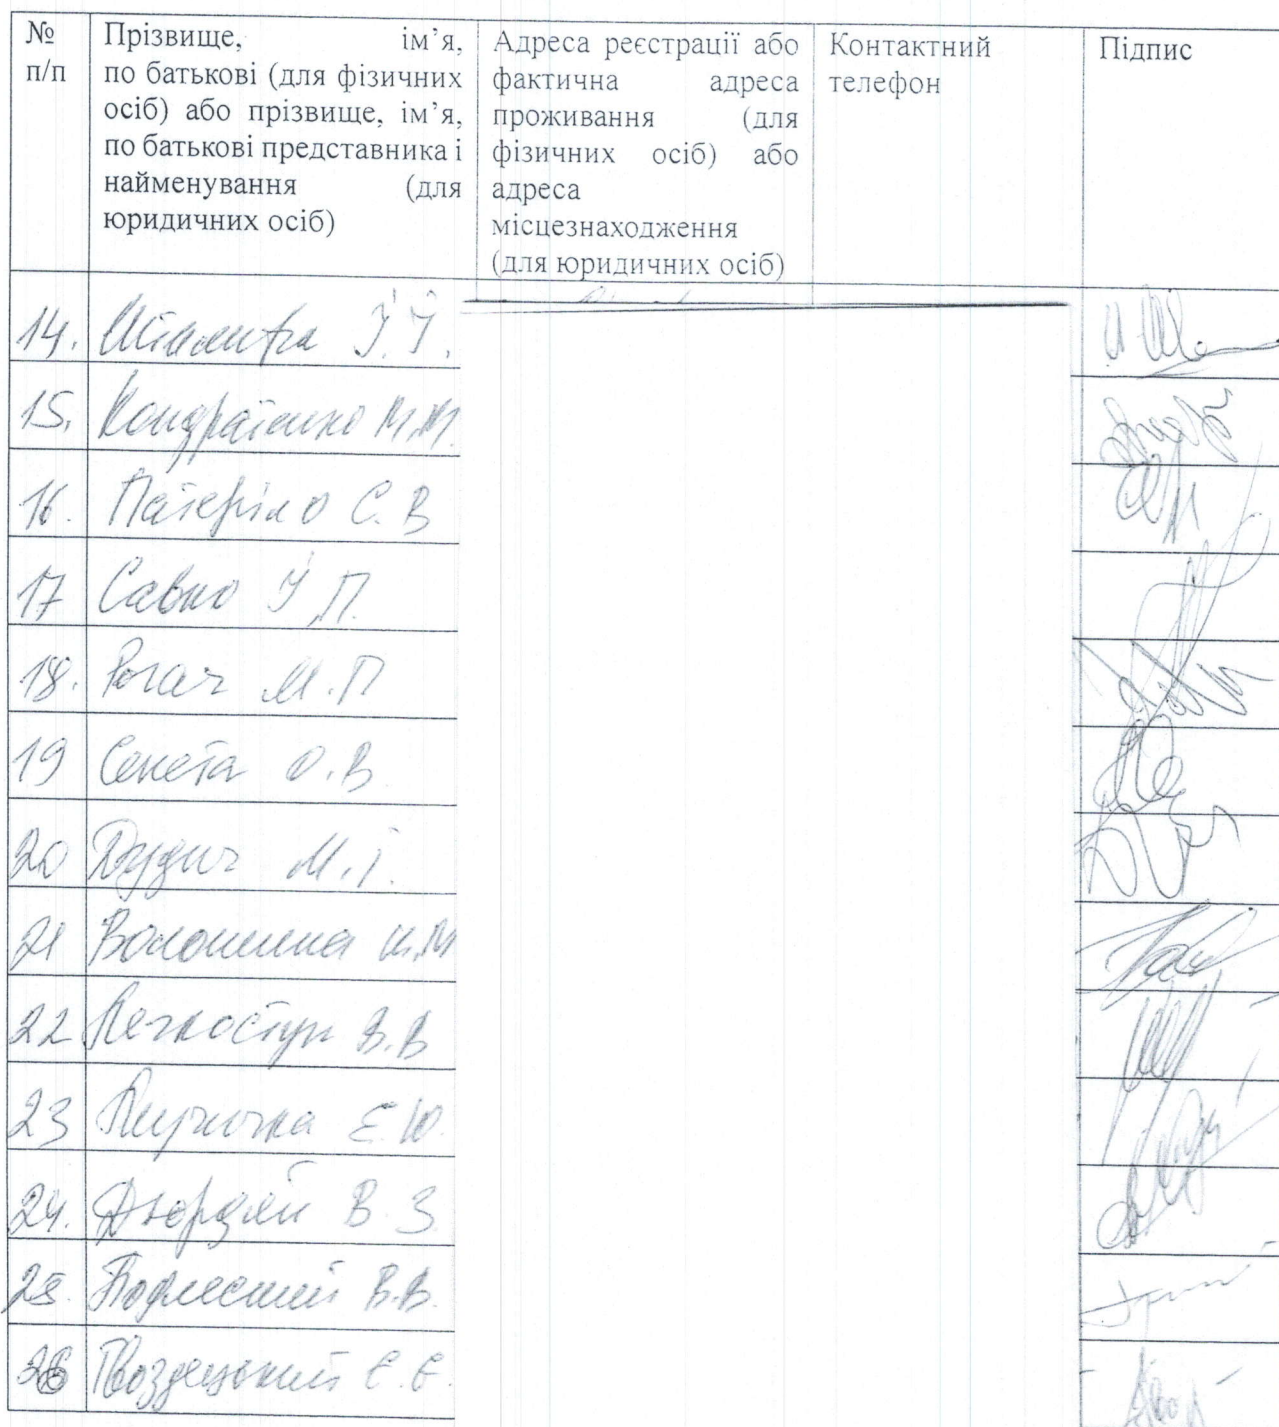 № п/п
Прізвище, ім’я, по батькові (для фізичних осіб) або прізвище, ім’я, по батькові представника і найменування (для юридичних осіб)
Адреса реєстрації або фактична адреса проживання (для фізичних осіб) або адреса місцезнаходження (для юридичних осіб)
Контактний телефон
Підпис
14. І. І.
15. Кондратенко М.М.
16. Патеріло С. В
17 Савко І П.
18. Рогач М. П
19 Сенета О. В
20 Дудич М. І.
21 Волошина М
22 Легкоступ В. В
23 Є. Ю.
24. В З
25. В.В.
26 Гвоздецький Є. Є.